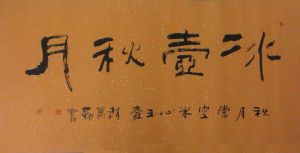 冰壺秋月
秋月當空冰心玉壺書